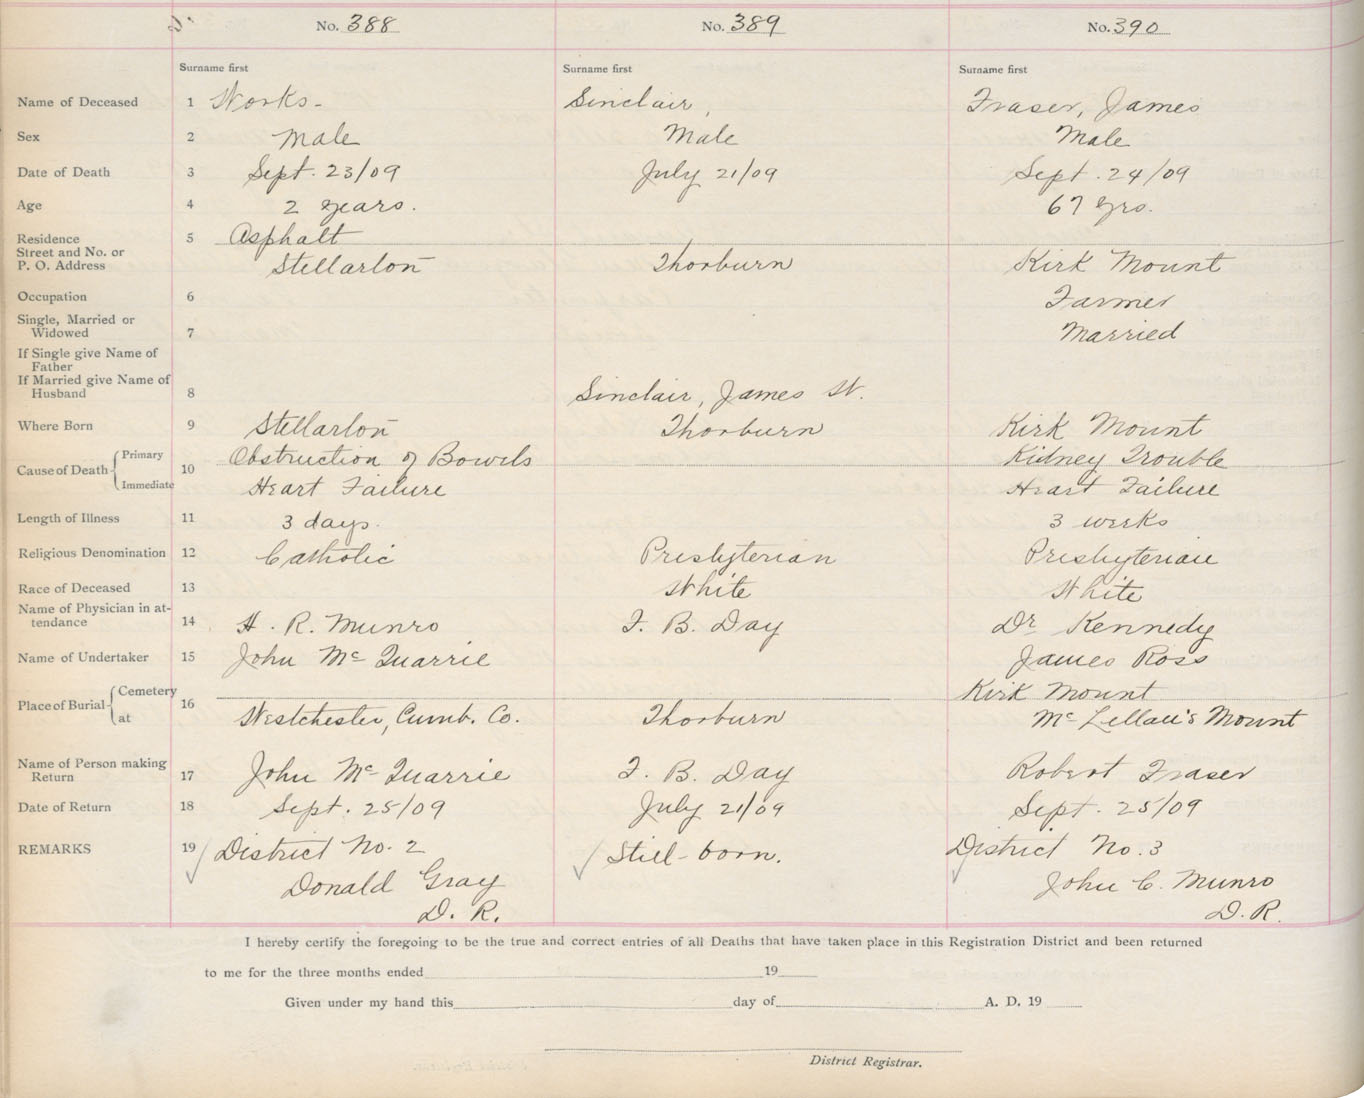 No. 388
No. 389
No. 390
Surname first
Surname first
Surname first
Name of Deceased 1 Works- Sinclair, Fraser, James
Sex 2 Male Male Male
Date of Death 3 Sept. 23/09 July 21/09 Sept. 24/09
Age 4 2 years. 67 yrs.
Residence 5 Asphalt
Street and No. or
P. O. Address Stellarton Thorburn Kirk Mount
Occupation 6 Farmer
Single, Married or
Widowed 7 Married
If Single give Name of
Father
If Married give Name of
Husband 8 Sinclair, James W.
Where Born 9 Stellarton Thorburn Kirk Mount
Cause of Death 10 Primary Obstruction of Bowels Kidney Trouble
Immediate Heart Failure Heart Failure
Length of Illness 11 3 days. 3 weeks
Religious Denomination 12 Catholic Presbyterian Presbyterian
Race of Deceased 13 White White
Name of Physician in at-
tendance 14 H. R. Munro F. B. Day Dr Kennedy
Name of Undertaker 15 John Mc Quarrie James Ross
Place of Burial 16 Cemetery Kirk Mount
at Westchester, Cumb. Co. Thorburn Mc Lellan's Mount
Name of Person making
Return 17 John Mc Quarrie F. B. Day Robert Fraser
Date of Return 18 Sept. 25/09 July 21/09 Sept. 25/09
REMARKS 19 District No. 2 Still-born. District No. 3
Donald Gray John C. Munro
D. R. D. R.
I hereby certify the foregoing to be the true and correct entries of all Deaths that have taken place in this Registration District and been returned
to me for the three months ended 19
Given under my hand this day of A. D. 19
District Registrar.